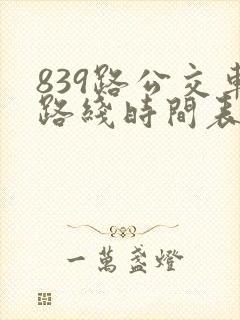 839路公交車
路綫時間表
一萬盞燈